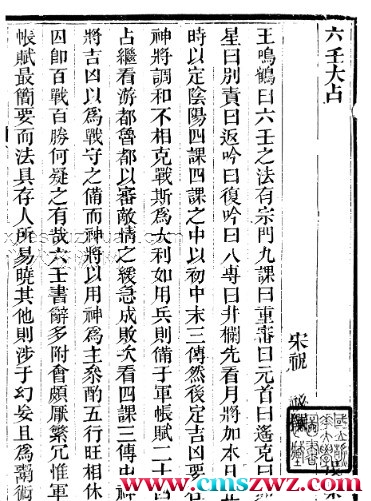 六壬大占
宋祝
王鳴鶴曰六壬之法有宗門九課曰重審曰元首曰遙克曰
星曰別責曰返吟曰復吟曰八專曰井欄先看月將加本日
時以定陰陽四課四課之中以初中末三傳然後定吉凶要
神將調和不相克戰斯爲大利如用兵則備于軍帳賦二十
占繼看游都魯都以審敵情之緩急成敗次看四課三傳中
將吉凶以爲戰守之備而神將以用神爲主叅酌五行旺相休
囚卽百戰百勝何疑之有哉六壬書辭多附會頗厭繁冗惟軍
帳賦最簡要而法具存人所易曉其他則涉于幻妄且爲
www.cmszwz.com